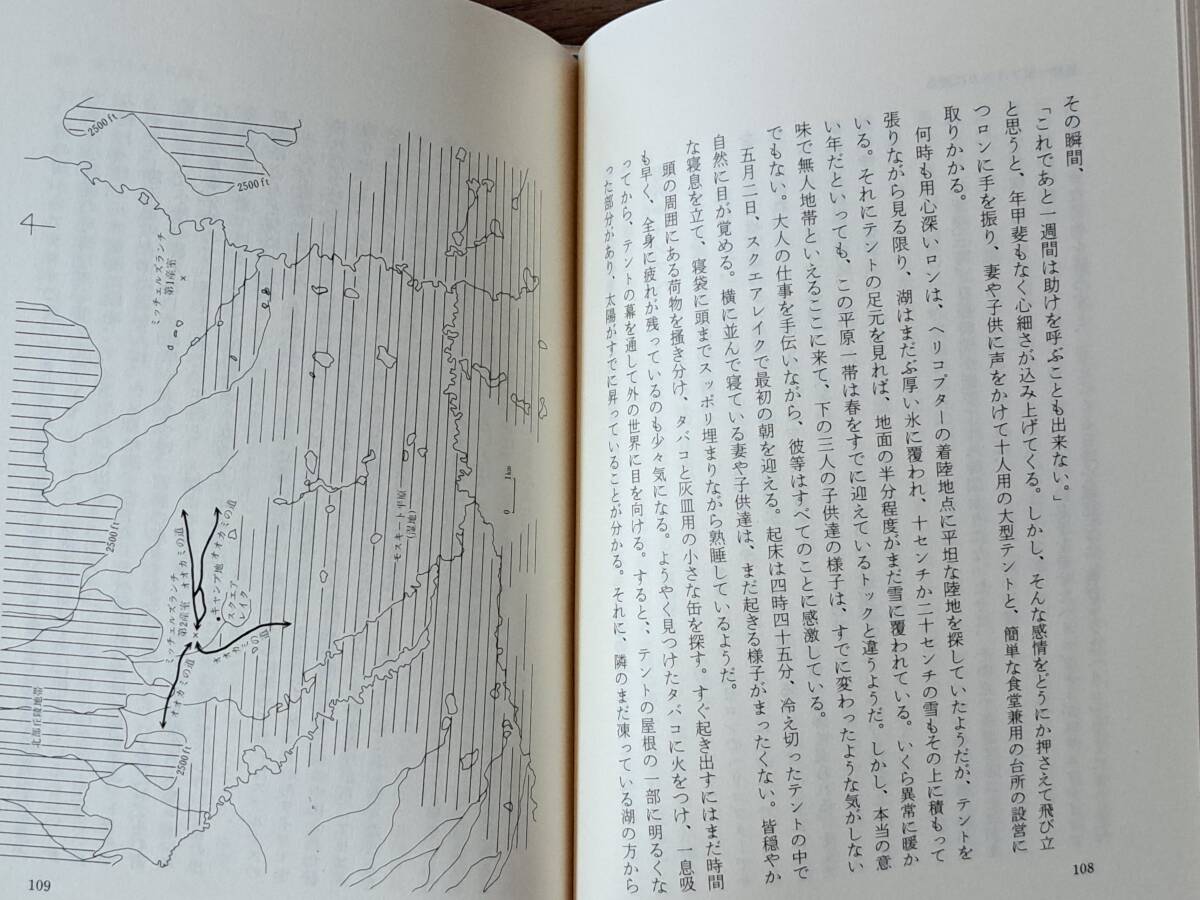 その瞬間、
「これであと一週間は助けを呼ぶことも出来ない。」
と思うと、年甲斐もなく心細さが込み上げてくる。しかし、そんな感情をどうにか押さえて飛び立
つロンに手を振り、妻や子供に声をかけて十人用の大型テントと、簡単な食堂兼用の台所の設営に
取りかかる。
何時も用心深いロンは、ヘリコプターの着陸地点に平坦な陸地を探していたようだが、テントを
張りながら見る限り、湖はまだぶ厚い氷に覆われ、十センチか二十センチの雪もその上に積もって
いる。それにテントの足元を見れば、地面の半分程度がまだ雪に覆われている。いくら異常に暖か
い年だといっても、この平原一帯は春をすでに迎えているトックと違うようだ。しかし、本当の意
味で無人地帯といえるここに来て、下の三人の子供達の様子は、すでに変わったような気がしない
でもない。大人の仕事を手伝いながら、彼等はすべてのことに感激している。
五月二日、スクエアレイクで最初の朝を迎える。起床は四時四十五分、冷え切ったテントの中で
自然に目が覚める。横に並んで寝ている妻や子供達は、まだ起きる様子がまったくない。皆穏やか
な寝息を立て、寝袋に頭までスッポリ埋まりながら熟睡しているようだ。
頭の周囲にある荷物を掻き分け、タバコと灰皿用の小さな缶を探す。すぐ起き出すにはまだ時間
も早く、全身に疲れが残っているのも少々気になる。ようやく見つけたタバコに火をつけ、一息吸
ってから、テントの幕を通して外の世界に目を向ける。すると、、テントの屋根の一部に明るくな
った部分があり、太陽がすでに昇っていることが分かる。それに、隣のまだ凍っている湖の方から
108
2500ft
2500ft
ミッチェルズランチ
第1産室
×
0 1km
モスキート平原
(湿地)
2500ft
オオカミの道
オオカミの道
キャンプ地
スクエア
レイク
ミッチェルズランチ
第2産室
×
オオカミの道
オオカミの道
2500ft
北部丘陵地帯
109